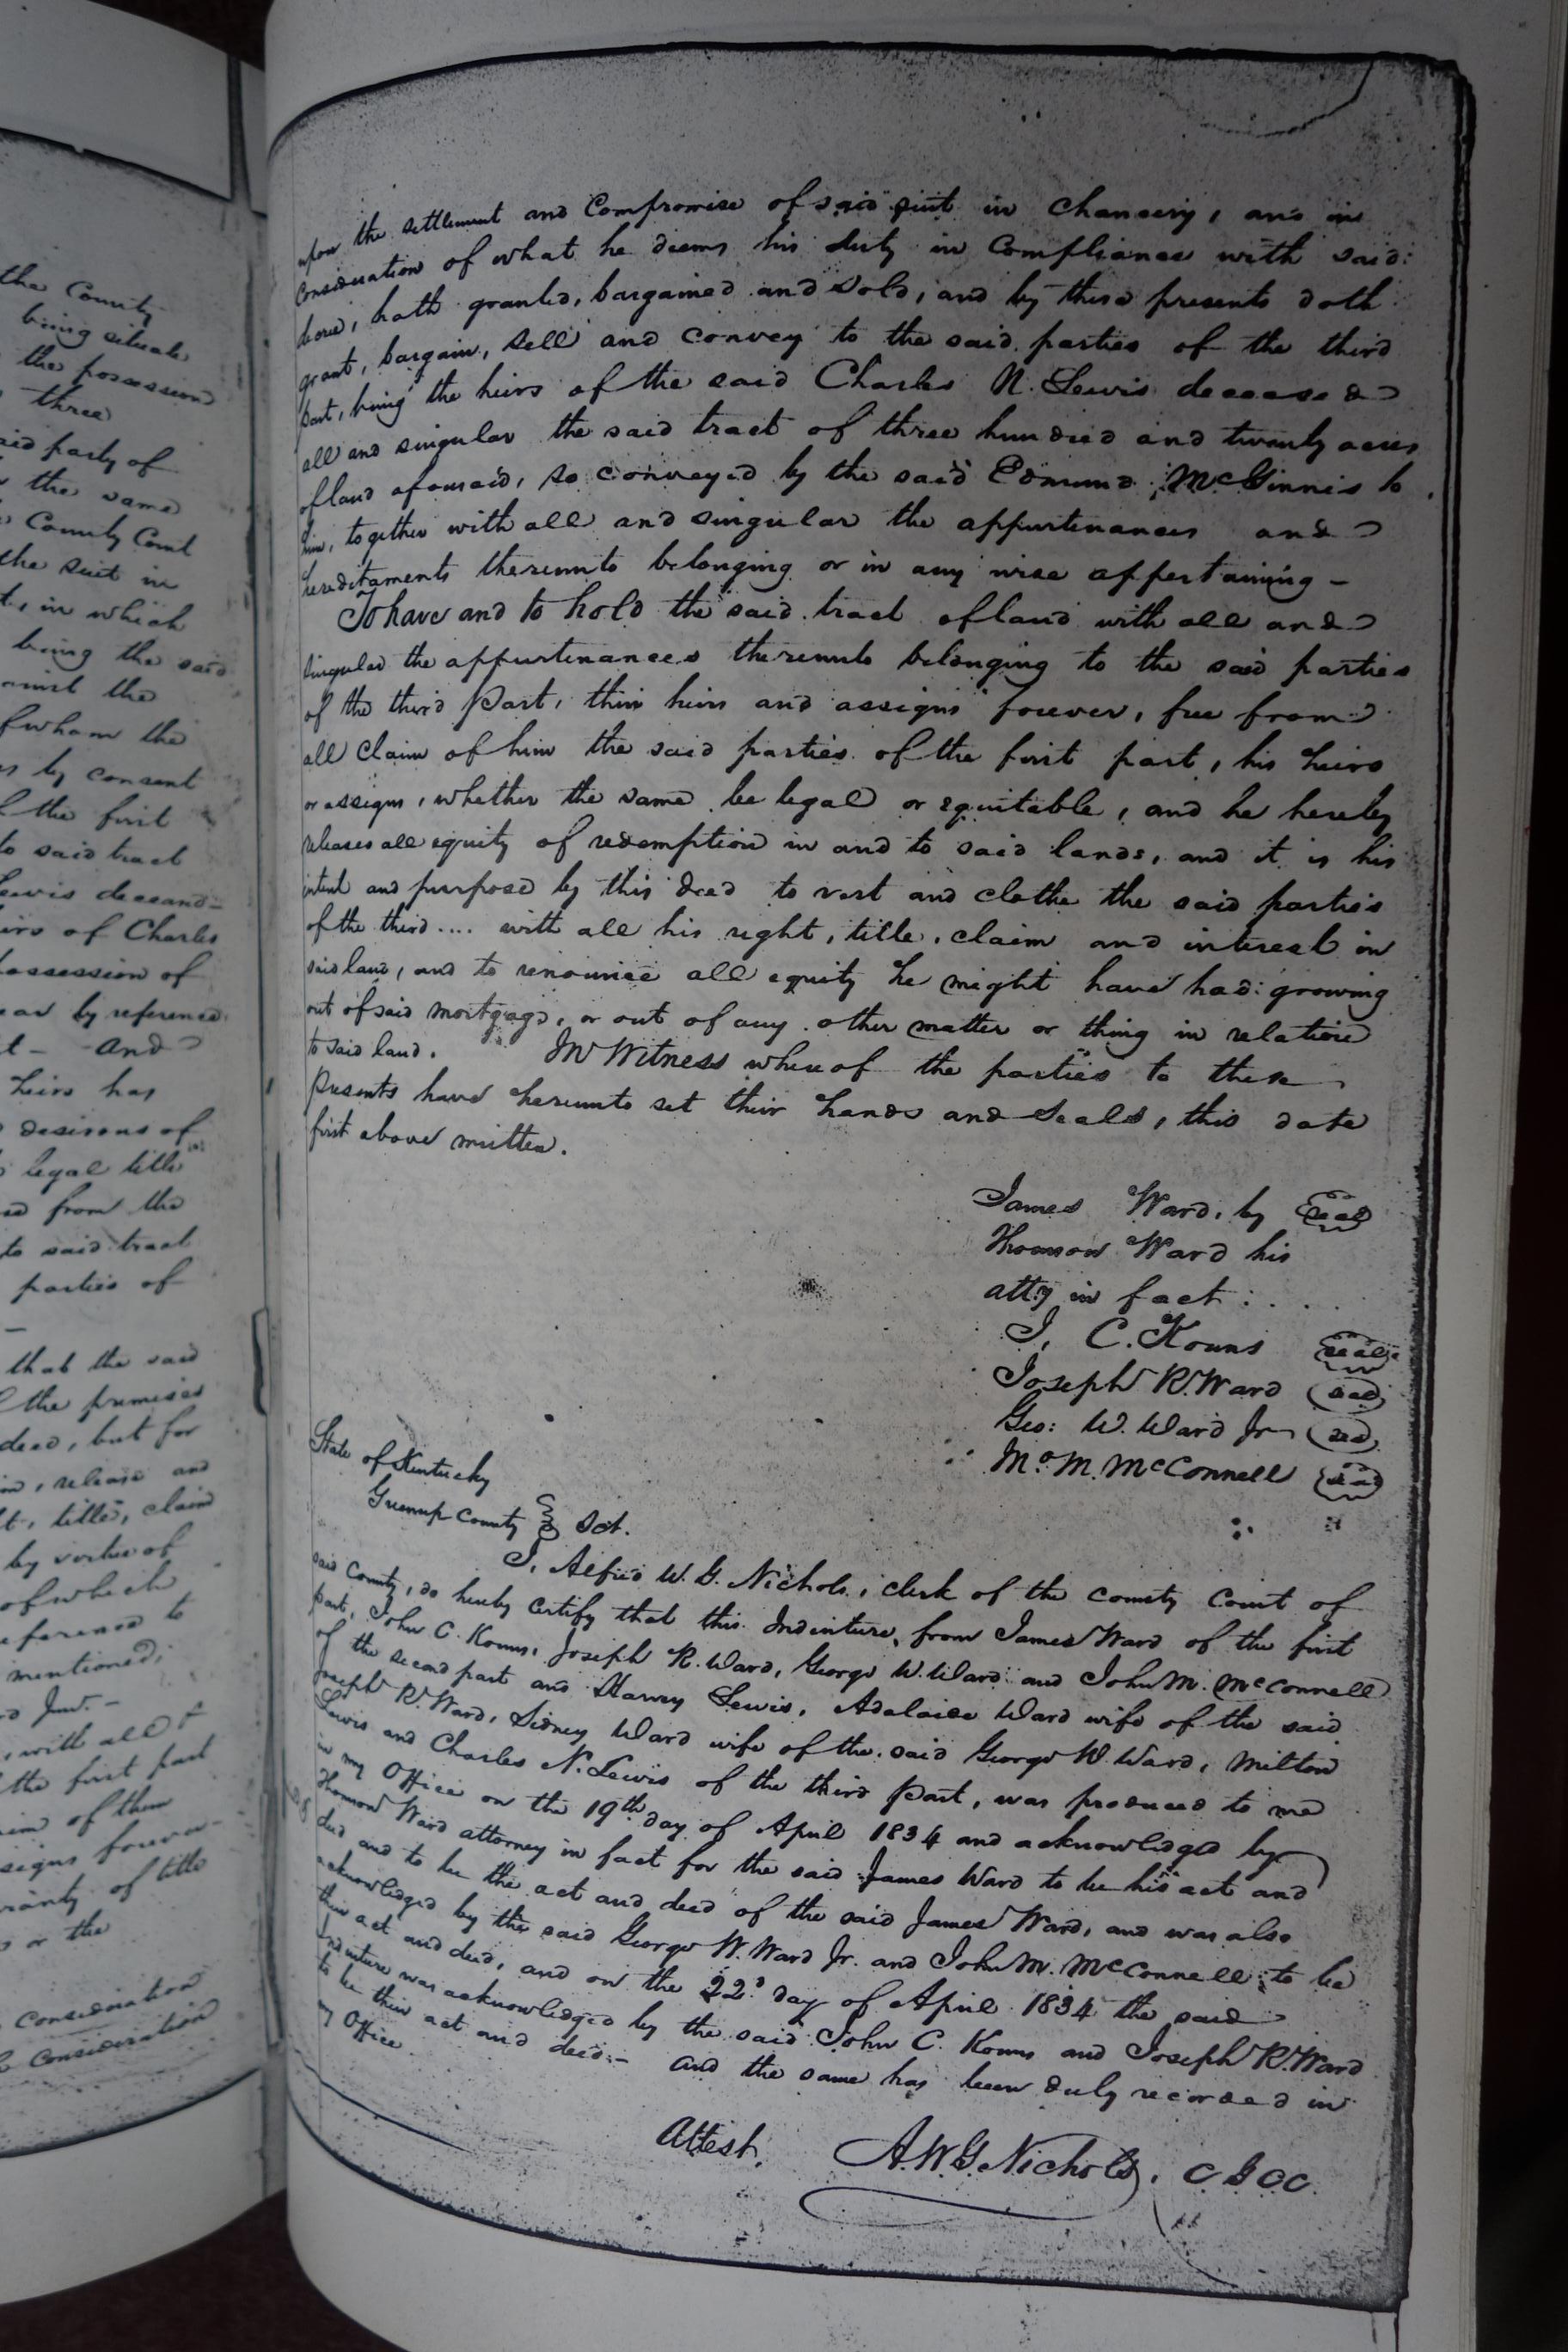 the County
being situate
the possession
three
said party of
the same
County Court
the suit in
in which
being the said
against the
of whom the
by consent
the first
to said tract
Lewis deceased-
heirs of Charles
possession of
by reference
- and
heirs has
desirous of
legal title
from the
to said tract
parties of
that the said
the premises
deed, but for
release and
title, claim
by virtue of
of which
reference to
mentioned,
Junr.-
with all
the first part
of them
assigns forever-
warranty of title
or the
consideration
consideration
upon the settlement and Compromise of said suit in Chancery, and in
Consideration of what he deems his duty in Compliance with said
hath granted, bargained and sold, and by these presents doth
grant, bargain, sell and convey to the said parties of the third
part, being the heirs of the said Charles N. Lewis deceased
all and singular the said tract of three hundred and twenty acres
of land aforesaid, so conveyed by the said Edmund McGinnis to
him, together with all and singular the appurtenances and
hereditaments thereunto belonging or in any wise appertaining -
To have and to hold the said tract of land with all and
singular the appurtenances thereunto belonging to the said parties
of the third Part, their heirs and assigns forever, free from
all claim of him the said parties of the first part, his heirs
or assigns, whether the same be legal or equitable, and he hereby
releases all equity of redemption in and to said lands, and it is his
intent and purpose by this deed to vest and clothe the said parties
of the third .... with all his right, title, claim and interest in
said land, and to renounce all equity he might have had growing
out of said mortgage, or out of any other matter or thing in relation
to said land. In Witness whereof the parties to these
presents have hereunto set their hands and seals, this date
first above written.
James Ward, by seal
Thomson Ward his
atty in fact:
J. C. Kouns seal
Joseph R. Ward seal
Geo: W. Ward Jr seal
Jno. M. McConnell seal
State of Kentucky
Greenup County } Sct.
I, Alfred W. G. Nichols, clerk of the county Court of
said County, do hereby certify that this Indenture, from James Ward of the first
part, John C. Kouns, Joseph R. Ward, George W. Ward and John M. McConnell
of the second part and Harvey Lewis, Adelaide Ward wife of the said
Joseph R. Ward, Sidney Ward wife of the said George W. Ward, Milton
Lewis and Charles N. Lewis of the third Part, was produced to me
in my Office on the 19th day of April 1834 and acknowledged by
Thomson Ward attorney in fact for the said James Ward to be his act and
deed and to be the act and deed of the said James Ward, and was also
acknowledged by the said George W. Ward Jr. and John M. McConnell to be
their act and deed, and on the 22d day of April 1834 the said
Indenture was acknowledged by the said John C. Kouns and Joseph R. Ward
to be their act and deed - and the same has been duly recorded in
my Office.
Attest, A. W. G. Nichols, C G C C.